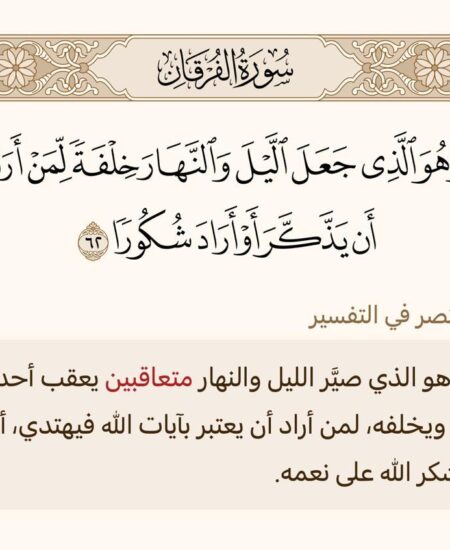 سُورَةُ الْفُرْقَانِ
هُوَ ٱلَّذِى جَعَلَ ٱلَّيْلَ وَٱلنَّهَارَ خِلْفَةً لِّمَنْ
أَن يَذَّكَّرَ أَوْ أَرَادَ شُكُورًا ٦٢
في التفسير
هو الذي صيَّر الليل والنهار متعاقبين يعقب
ويخلفه، لمن أراد أن يعتبر بآيات الله فيهتدي،
الله على نعمه.